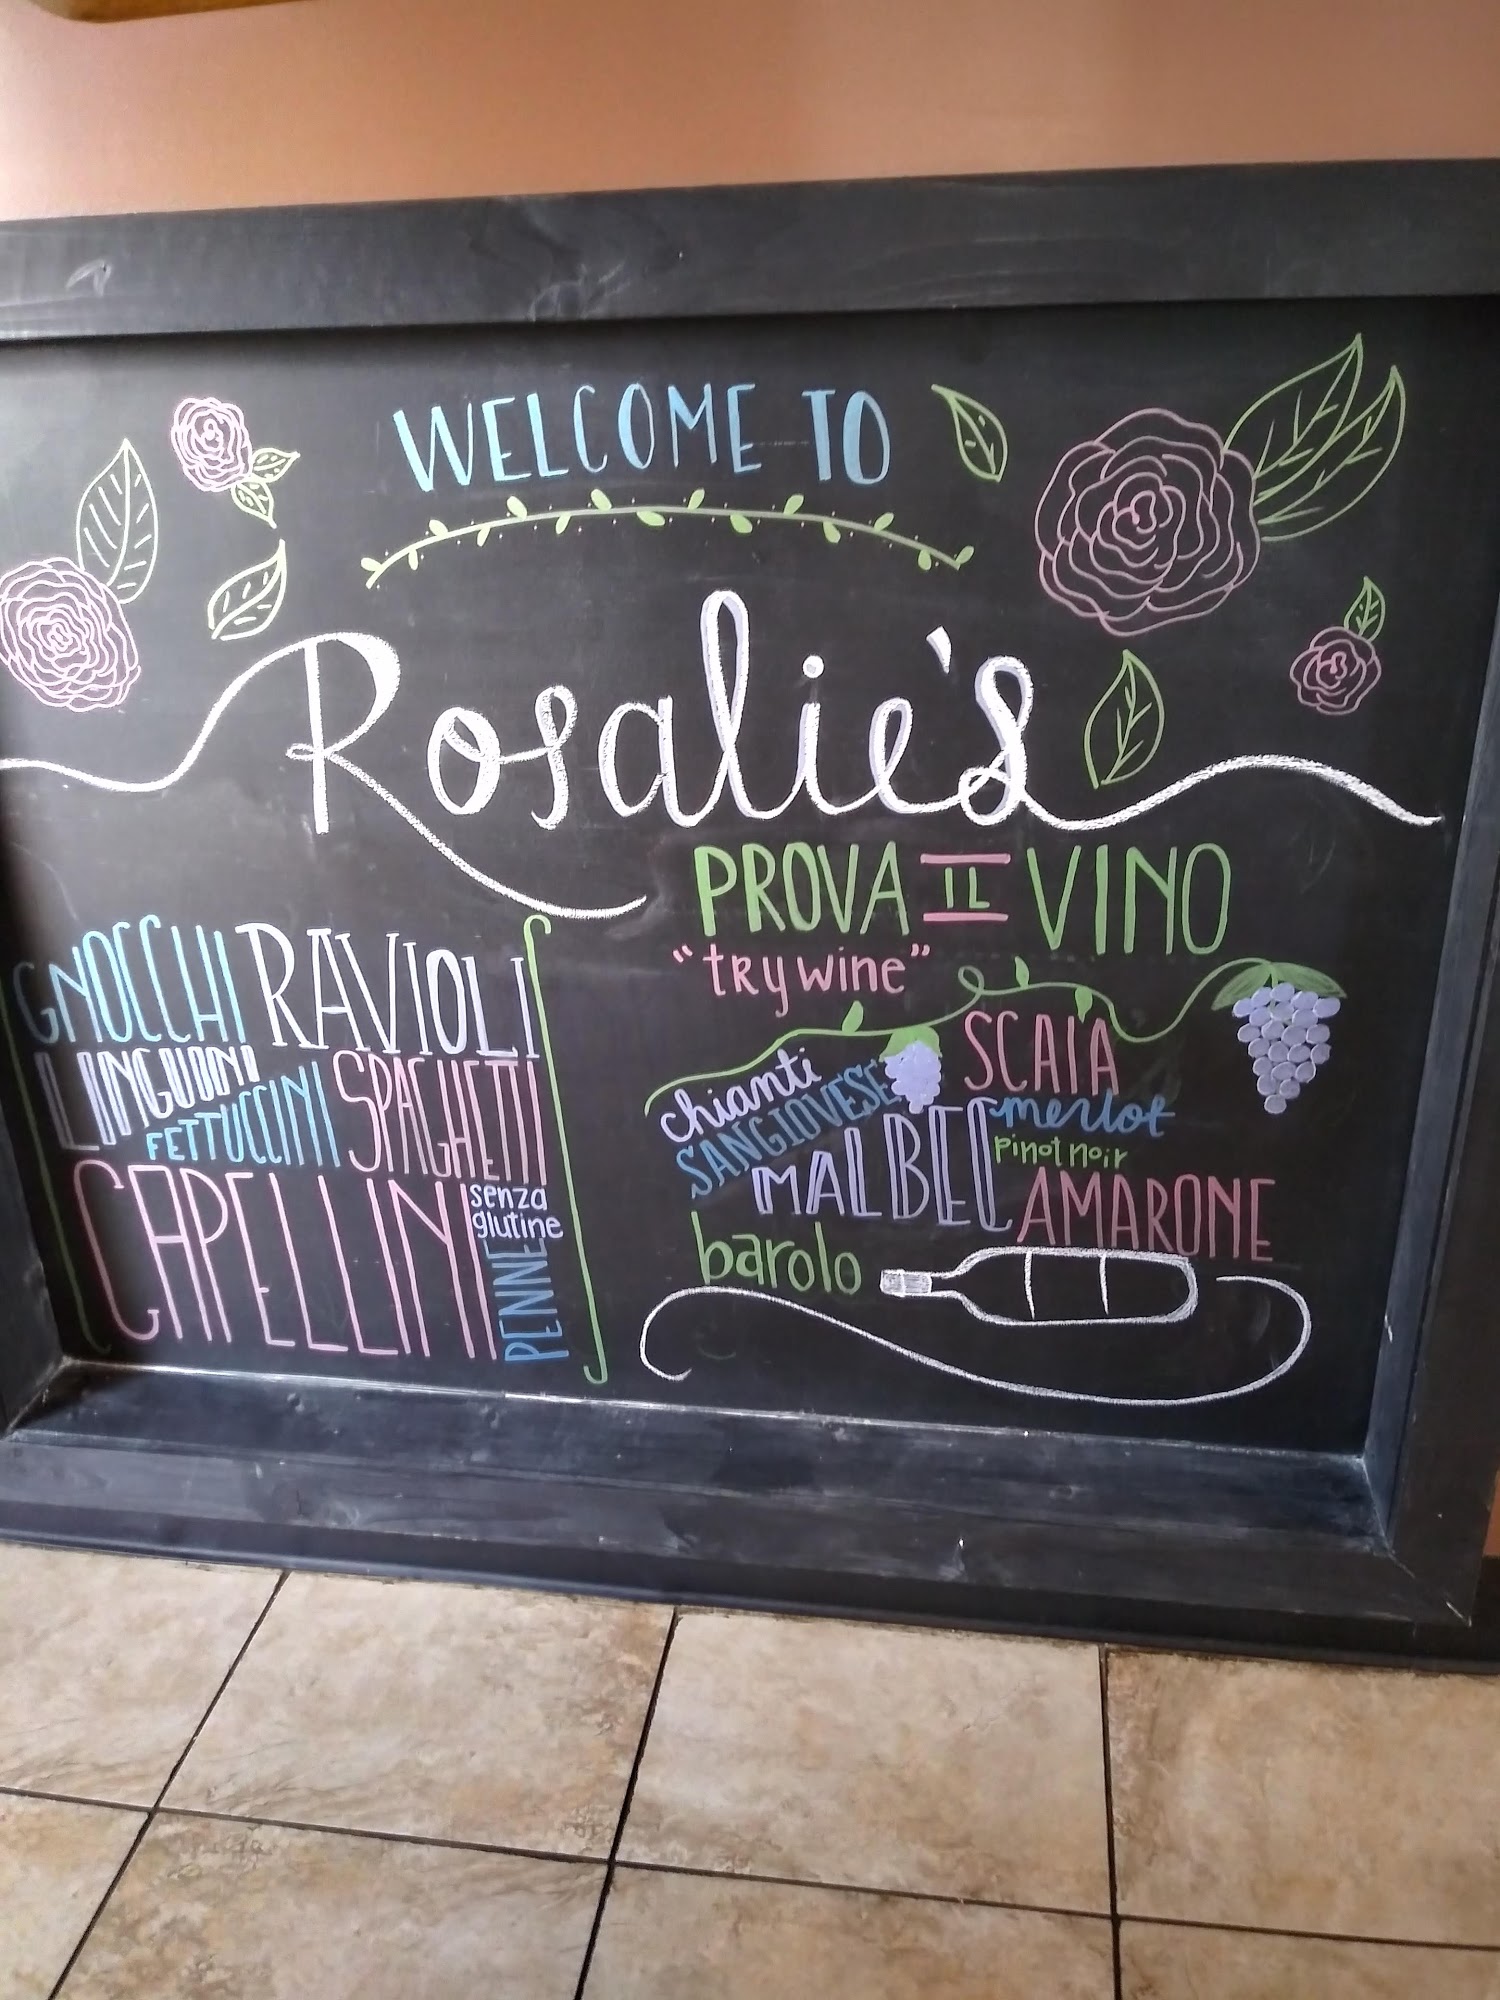 WELCOME TO
Rosalie's
GNOCCHI RAVIOLI
LINGUINI
FETTUCCINI SPAGHETTI
CAPELLINI
senza
glutine
PENNE
PROVA IL VINO
"try wine"
chianti
SANGIOVESE
SCAIA
merlot
MALBEC
pinot noir
AMARONE
barolo